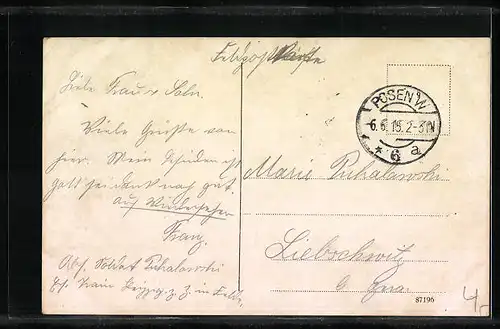 Feldpostkarte
Liebe Frau u Sohn.
Viele Grüße von
hier. Mein Befinden ist
gott sei dank noch gut.
auf Wiedersehen
Franz
Abs. Soldat Puhalawski
in
POSEN W
6.6.15.2-3N
* 6 a
Marie Puhalawski
Liebschwitz
b Gera
87196
4,-